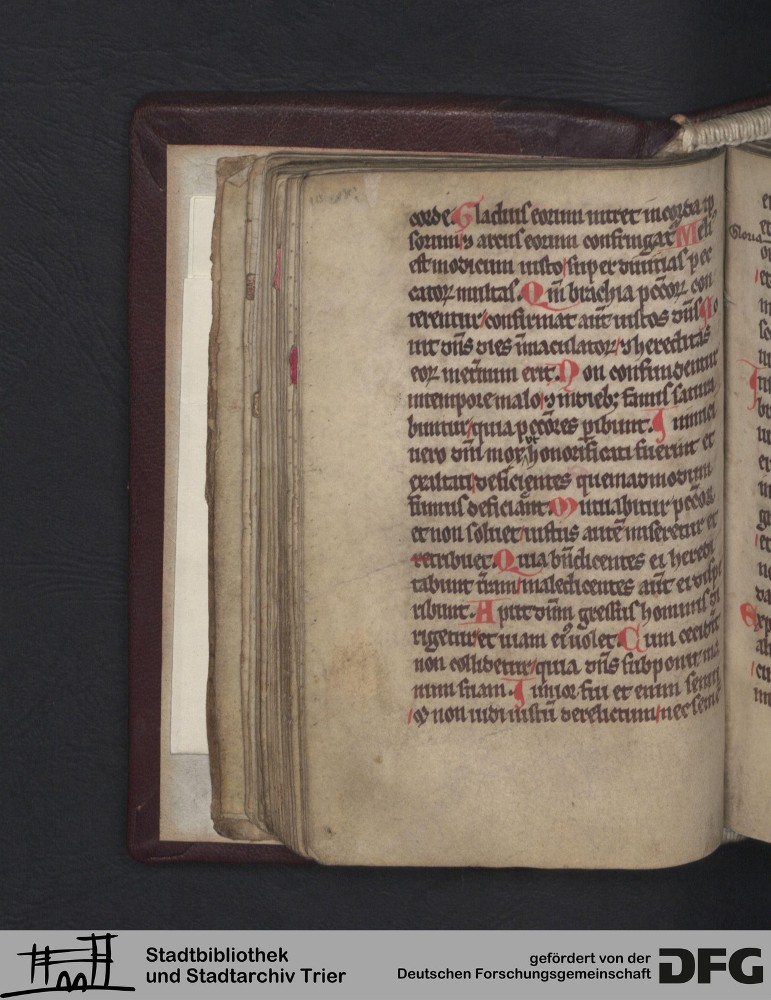 corde. Gladius eorum intret in corda ip
sorum ⁊ arcus eorum confringat͛ Meli
est modicum iusto/super diuitias pec
catoꝝ multas. Qm̄ brachia pcc̄oꝝ con
terentur/confirmat aūt iustos dn̄s No
uit dn̄s dies īmaculatoꝝ/⁊ hereditas
eoꝝ inet̄num erit. Non confundentur
in tempore malo/⁊ in dieb; famis satura
buntur/quia pccōres ꝑibunt. Inimici
uero dn̄i mox ut honorificati fuerint et
exaltati/deficientes quemadmodum
fumus deficiant. Mutuabitur pccōr
et non soluet/iustus autē miseretur et
retribuet. Quia bn̄dicentes ei heredi
tabunt t̄ram/maledicentes aūt ei disp
ribunt. Aput dn̄m gressus hominis di
rigetur/et uiam eiꝰ uolet. Cum cecid̄it
non collidetur/quia dn̄s supponit ma
num suam. Iunior fui et enim senui
/⁊ non uidi iustū derelictum/nec seme
Gloria
Stadtbibliothek
und Stadtarchiv Trier
gefördert von der
Deutschen Forschungsgemeinschaft
DFG